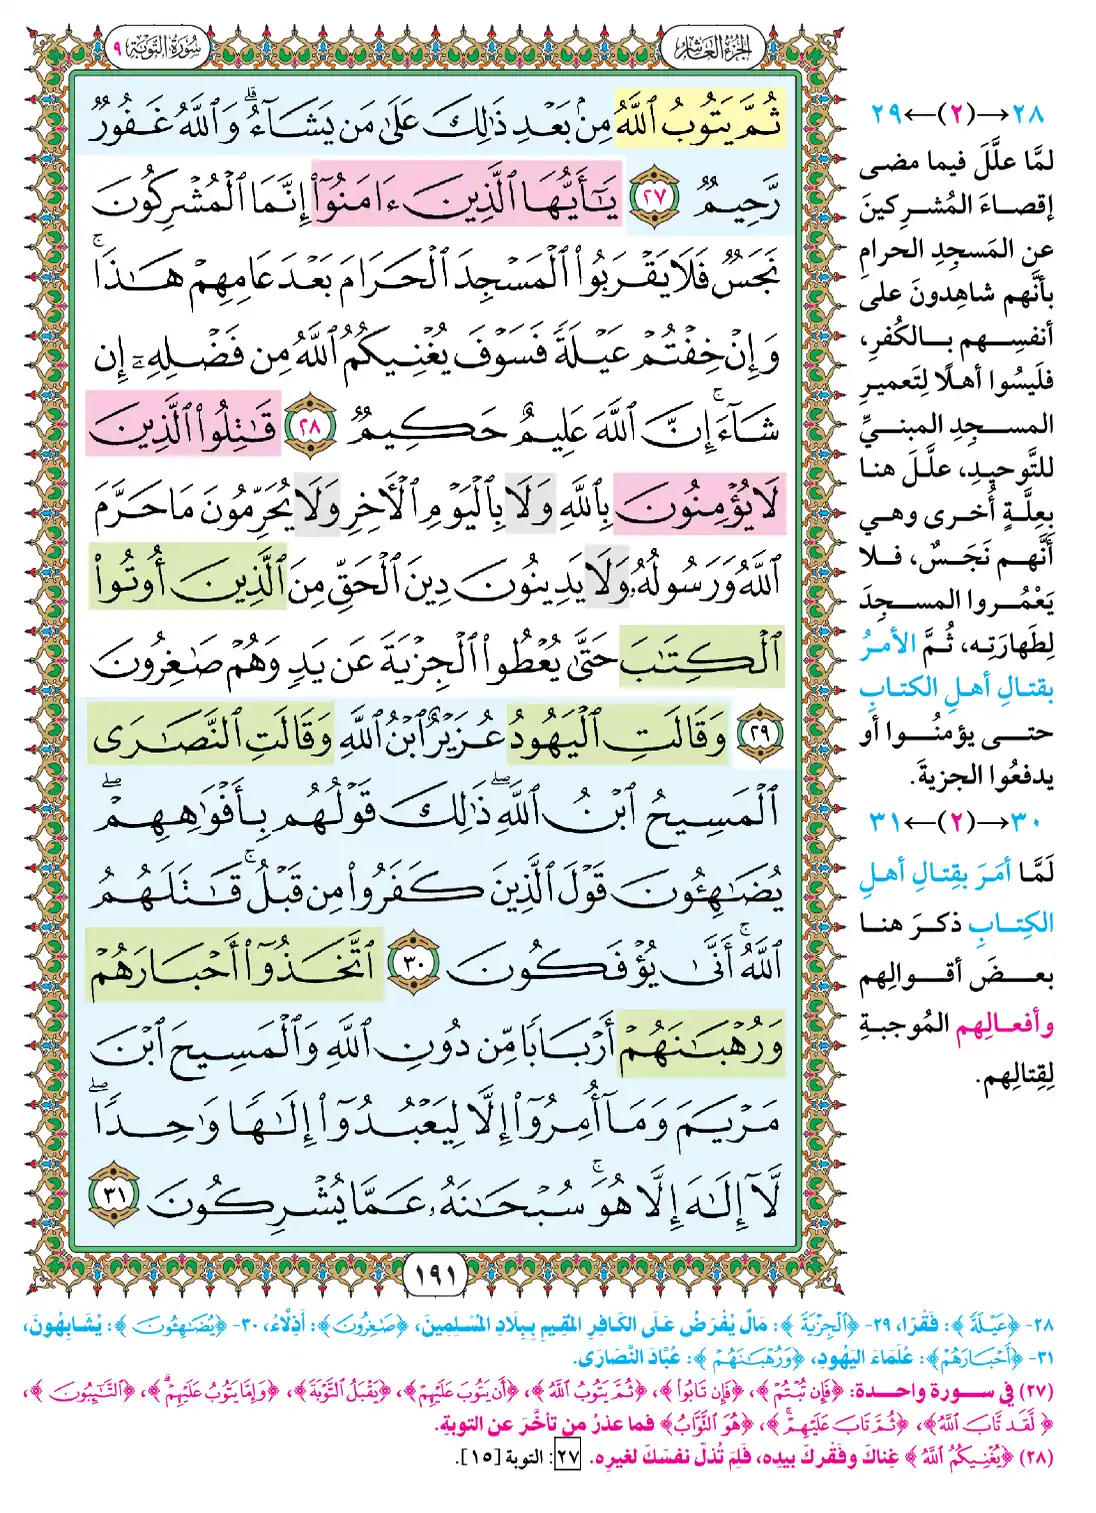 الجزء العاشر
سورة التوبة ٩
ثُمَّ يَتُوبُ ٱللَّهُ مِنۢ بَعْدِ ذَٰلِكَ عَلَىٰ مَن يَشَآءُ ۗ وَٱللَّهُ غَفُورٌ
رَّحِيمٌ ٢٧ يَـٰٓأَيُّهَا ٱلَّذِينَ ءَامَنُوٓا۟ إِنَّمَا ٱلْمُشْرِكُونَ
نَجَسٌ فَلَا يَقْرَبُوا۟ ٱلْمَسْجِدَ ٱلْحَرَامَ بَعْدَ عَامِهِمْ هَـٰذَا ۚ
وَإِنْ خِفْتُمْ عَيْلَةً فَسَوْفَ يُغْنِيكُمُ ٱللَّهُ مِن فَضْلِهِۦٓ إِن
شَآءَ ۚ إِنَّ ٱللَّهَ عَلِيمٌ حَكِيمٌ ٢٨ قَـٰتِلُوا۟ ٱلَّذِينَ
لَا يُؤْمِنُونَ بِٱللَّهِ وَلَا بِٱلْيَوْمِ ٱلْـَٔاخِرِ وَلَا يُحَرِّمُونَ مَا حَرَّمَ
ٱللَّهُ وَرَسُولُهُۥ وَلَا يَدِينُونَ دِينَ ٱلْحَقِّ مِنَ ٱلَّذِينَ أُوتُوا۟
ٱلْكِتَـٰبَ حَتَّىٰ يُعْطُوا۟ ٱلْجِزْيَةَ عَن يَدٍ وَهُمْ صَـٰغِرُونَ
٢٩ وَقَالَتِ ٱلْيَهُودُ عُزَيْرٌ ٱبْنُ ٱللَّهِ وَقَالَتِ ٱلنَّصَـٰرَى
ٱلْمَسِيحُ ٱبْنُ ٱللَّهِ ۖ ذَٰلِكَ قَوْلُهُم بِأَفْوَٰهِهِمْ ۖ
يُضَـٰهِـُٔونَ قَوْلَ ٱلَّذِينَ كَفَرُوا۟ مِن قَبْلُ ۚ قَـٰتَلَهُمُ
ٱللَّهُ ۚ أَنَّىٰ يُؤْفَكُونَ ٣٠ ٱتَّخَذُوٓا۟ أَحْبَارَهُمْ
وَرُهْبَـٰنَهُمْ أَرْبَابًا مِّن دُونِ ٱللَّهِ وَٱلْمَسِيحَ ٱبْنَ
مَرْيَمَ وَمَآ أُمِرُوٓا۟ إِلَّا لِيَعْبُدُوٓا۟ إِلَـٰهًا وَٰحِدًا ۖ
لَّآ إِلَـٰهَ إِلَّا هُوَ ۚ سُبْحَـٰنَهُۥ عَمَّا يُشْرِكُونَ ٣١
١٩١
٢٨→(٢)←٢٩
لمَّا علَّلَ فيما مضى
إقصاءَ المُشرِكينَ
عن المَسجِدِ الحرامِ
بأنَّهم شاهِدونَ على
أنفسِهم بالكُفرِ،
فلَيسُوا أهلًا لِتَعميرِ
المسجدِ المبنيِّ
للتَّوحيدِ، علَّلَ هنا
بعِلَّةٍ أُخرى وهي
أنَّهم نَجَسٌ، فلا
يَعْمُروا المسجِدَ
لِطَهارَتِه، ثُمَّ الأمرُ
بقتالِ أهلِ الكتابِ
حتى يؤمنُوا أو
يدفعُوا الجزيةَ.
٣٠→(٢)←٣١
لَمَّا أمَرَ بقِتالِ أهلِ
الكِتابِ ذكرَ هنا
بعضَ أقوالِهم
وأفعالِهم المُوجبةِ
لِقتالِهم.
٢٨- ﴿عَيْلَةً﴾: فَقْرًا، ٢٩- ﴿ٱلْجِزْيَةَ﴾: مَالٌ يُفْرَضُ عَلَى الكَافِرِ المُقِيمِ بِبِلَادِ المُسْلِمِينَ، ﴿صَـٰغِرُونَ﴾: أَذِلَّاءُ، ٣٠- ﴿يُضَـٰهِـُٔونَ﴾: يُشَابِهُونَ،
٣١- ﴿أَحْبَارَهُمْ﴾: عُلَمَاءَ اليَهُودِ، ﴿وَرُهْبَـٰنَهُمْ﴾: عُبَّادَ النَّصَارَى.
(٢٧) في سورة واحدة: ﴿فَإِن تُبْتُمْ﴾، ﴿فَإِن تَابُوا۟﴾، ﴿ثُمَّ يَتُوبُ ٱللَّهُ﴾، ﴿أَن يَتُوبَ عَلَيْهِمْ﴾، ﴿يَقْبَلُ ٱلتَّوْبَةَ﴾، ﴿وَإِمَّا يَتُوبُ عَلَيْهِمْ ۗ﴾، ﴿ٱلتَّـٰٓئِبُونَ﴾،
﴿لَّقَد تَّابَ ٱللَّهُ﴾، ﴿ثُمَّ تَابَ عَلَيْهِمْ ۚ﴾، ﴿هُوَ ٱلتَّوَّابُ﴾ فما عذرُ من تأخَّرَ عن التوبةِ.
(٢٨) ﴿يُغْنِيكُمُ ٱللَّهُ﴾ غِناكَ وفَقْركَ بيدِه، فَلِمَ تُذلّ نفسَكَ لغيرِه. ٢٧: التوبة [١٥].